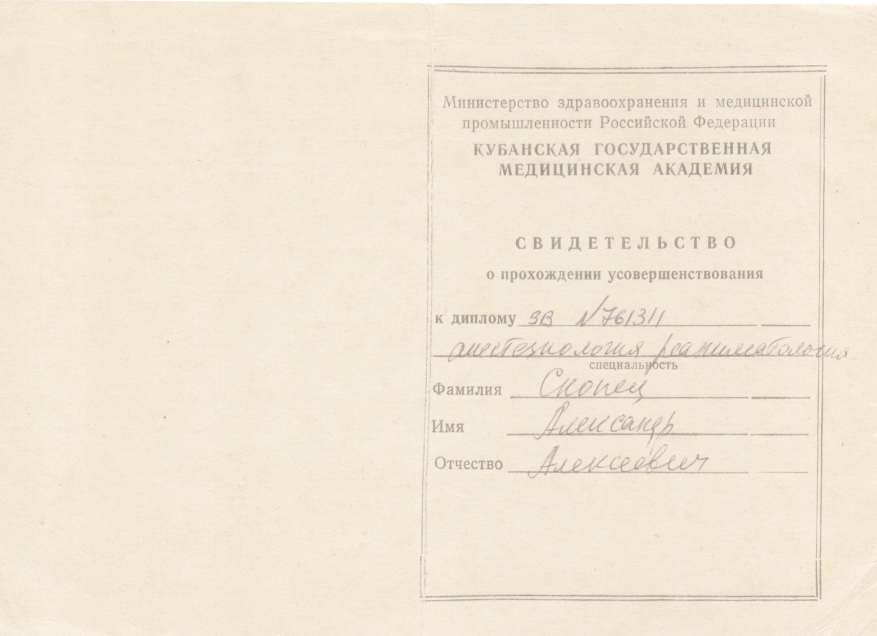 Министерство здравоохранения и медицинской
промышленности Российской Федерации
КУБАНСКАЯ ГОСУДАРСТВЕННАЯ
МЕДИЦИНСКАЯ АКАДЕМИЯ
СВИДЕТЕЛЬСТВО
о прохождении усовершенствования
к диплому ЗВ №761311
анестезиология реаниматология
специальность
Фамилия Скопец
Имя Александр
Отчество Алексеевич